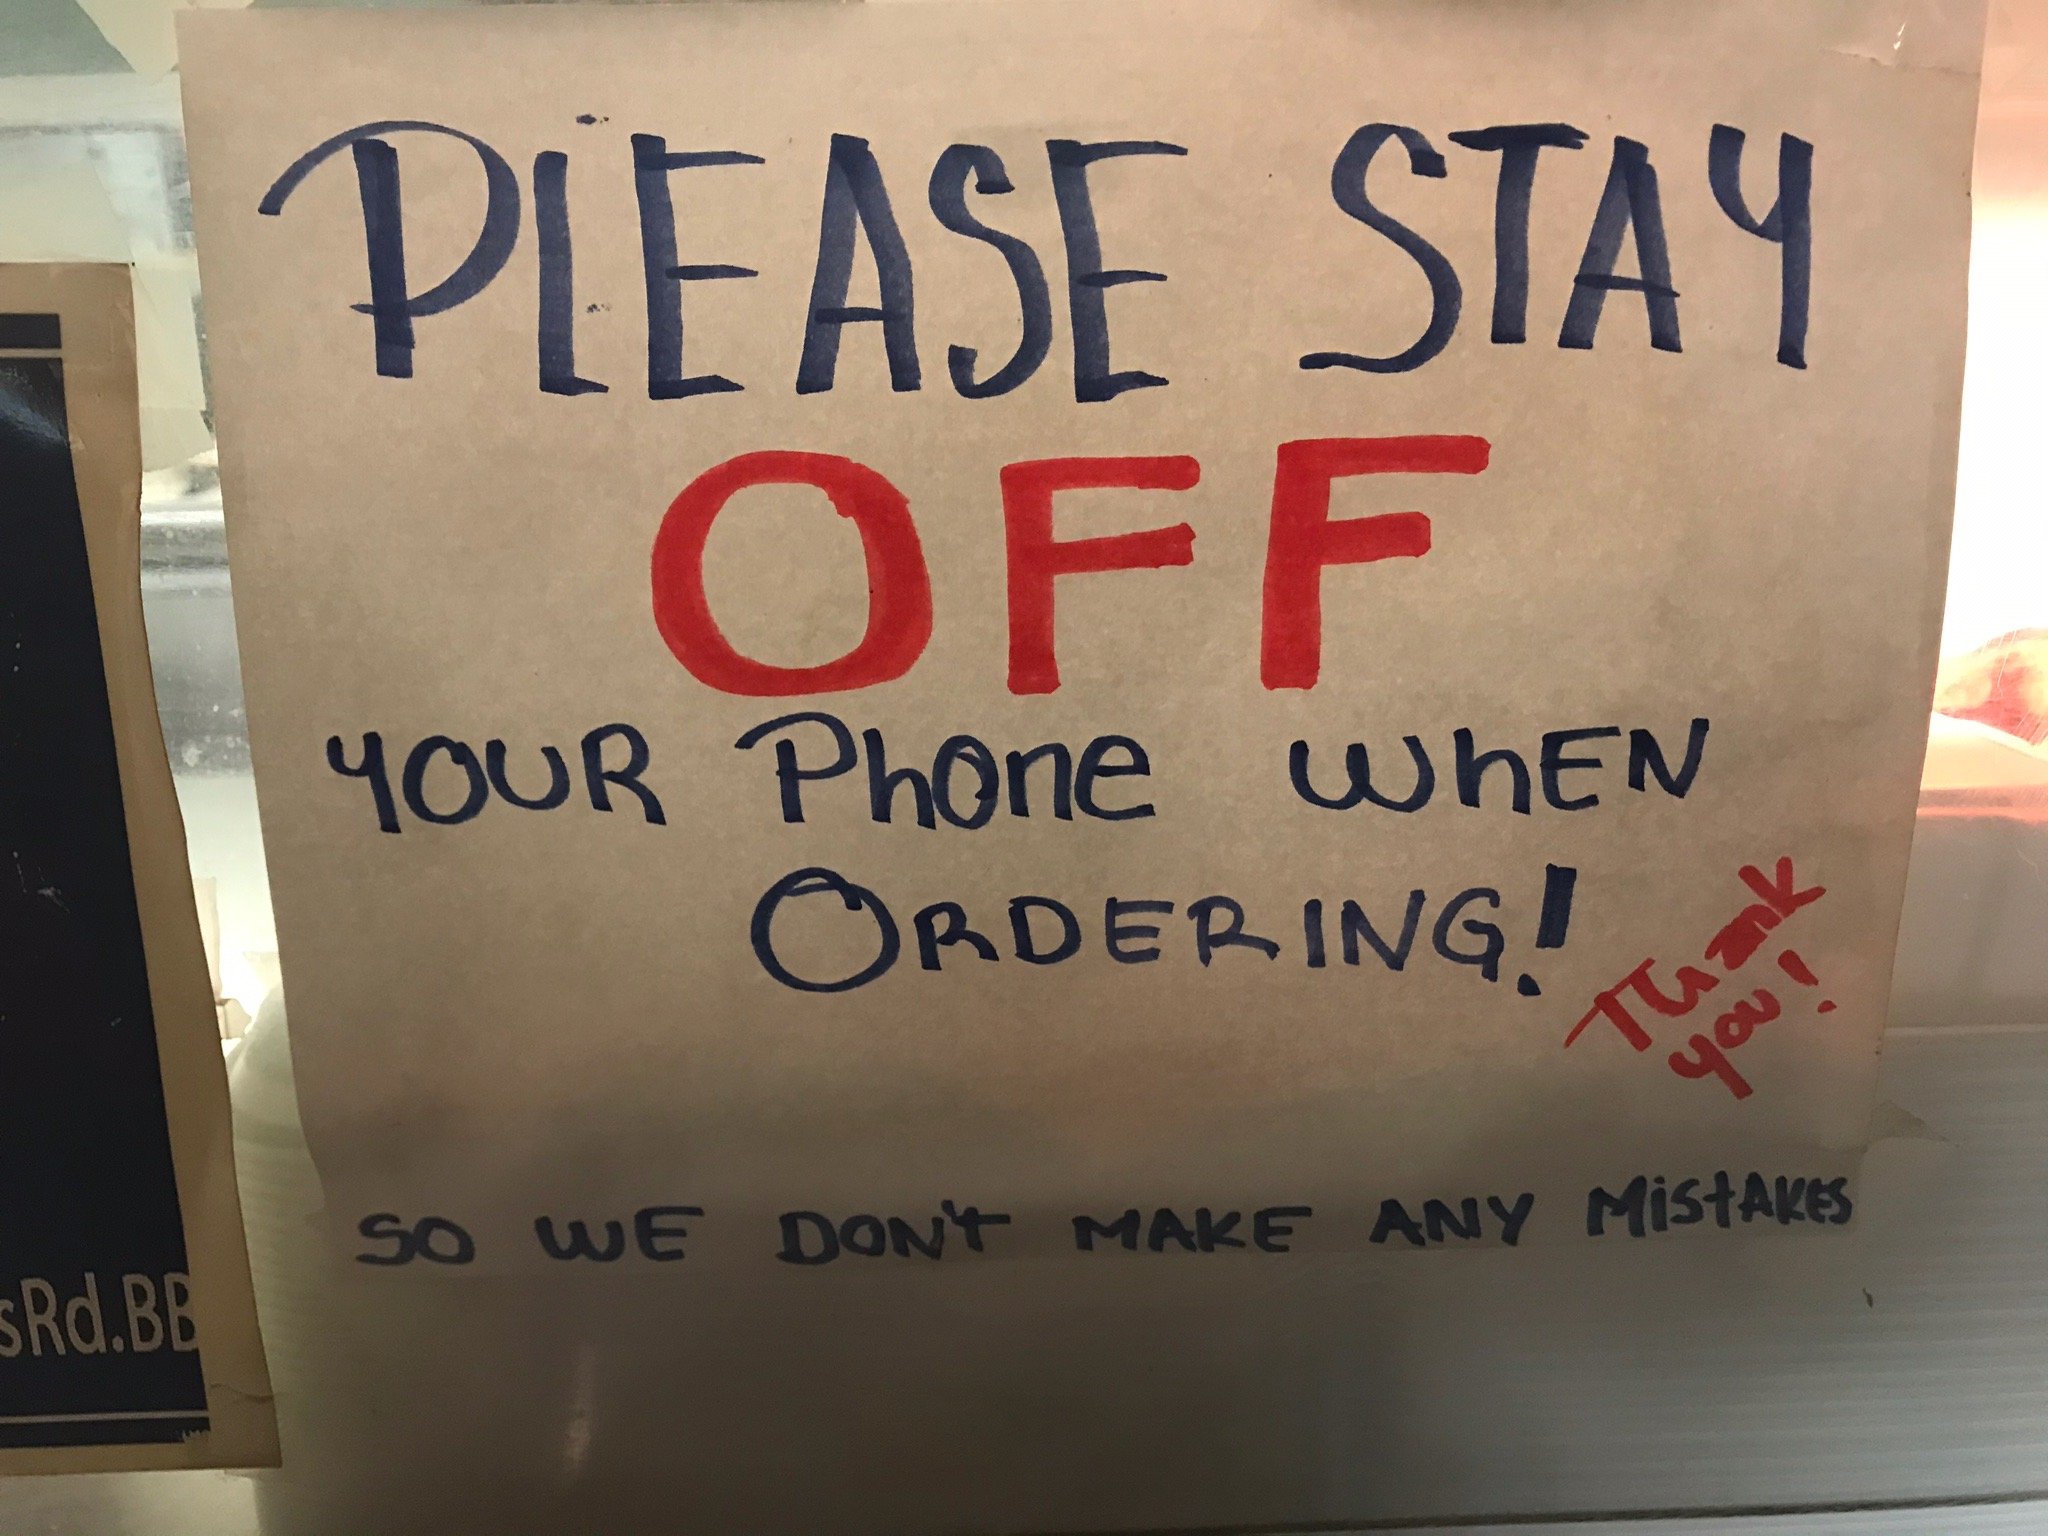 PLEASE STAY
OFF
YOUR Phone WhEN
ORDERING!
THank
you!
SO WE DON't MAKE ANY MistAKEs
sRd.BB